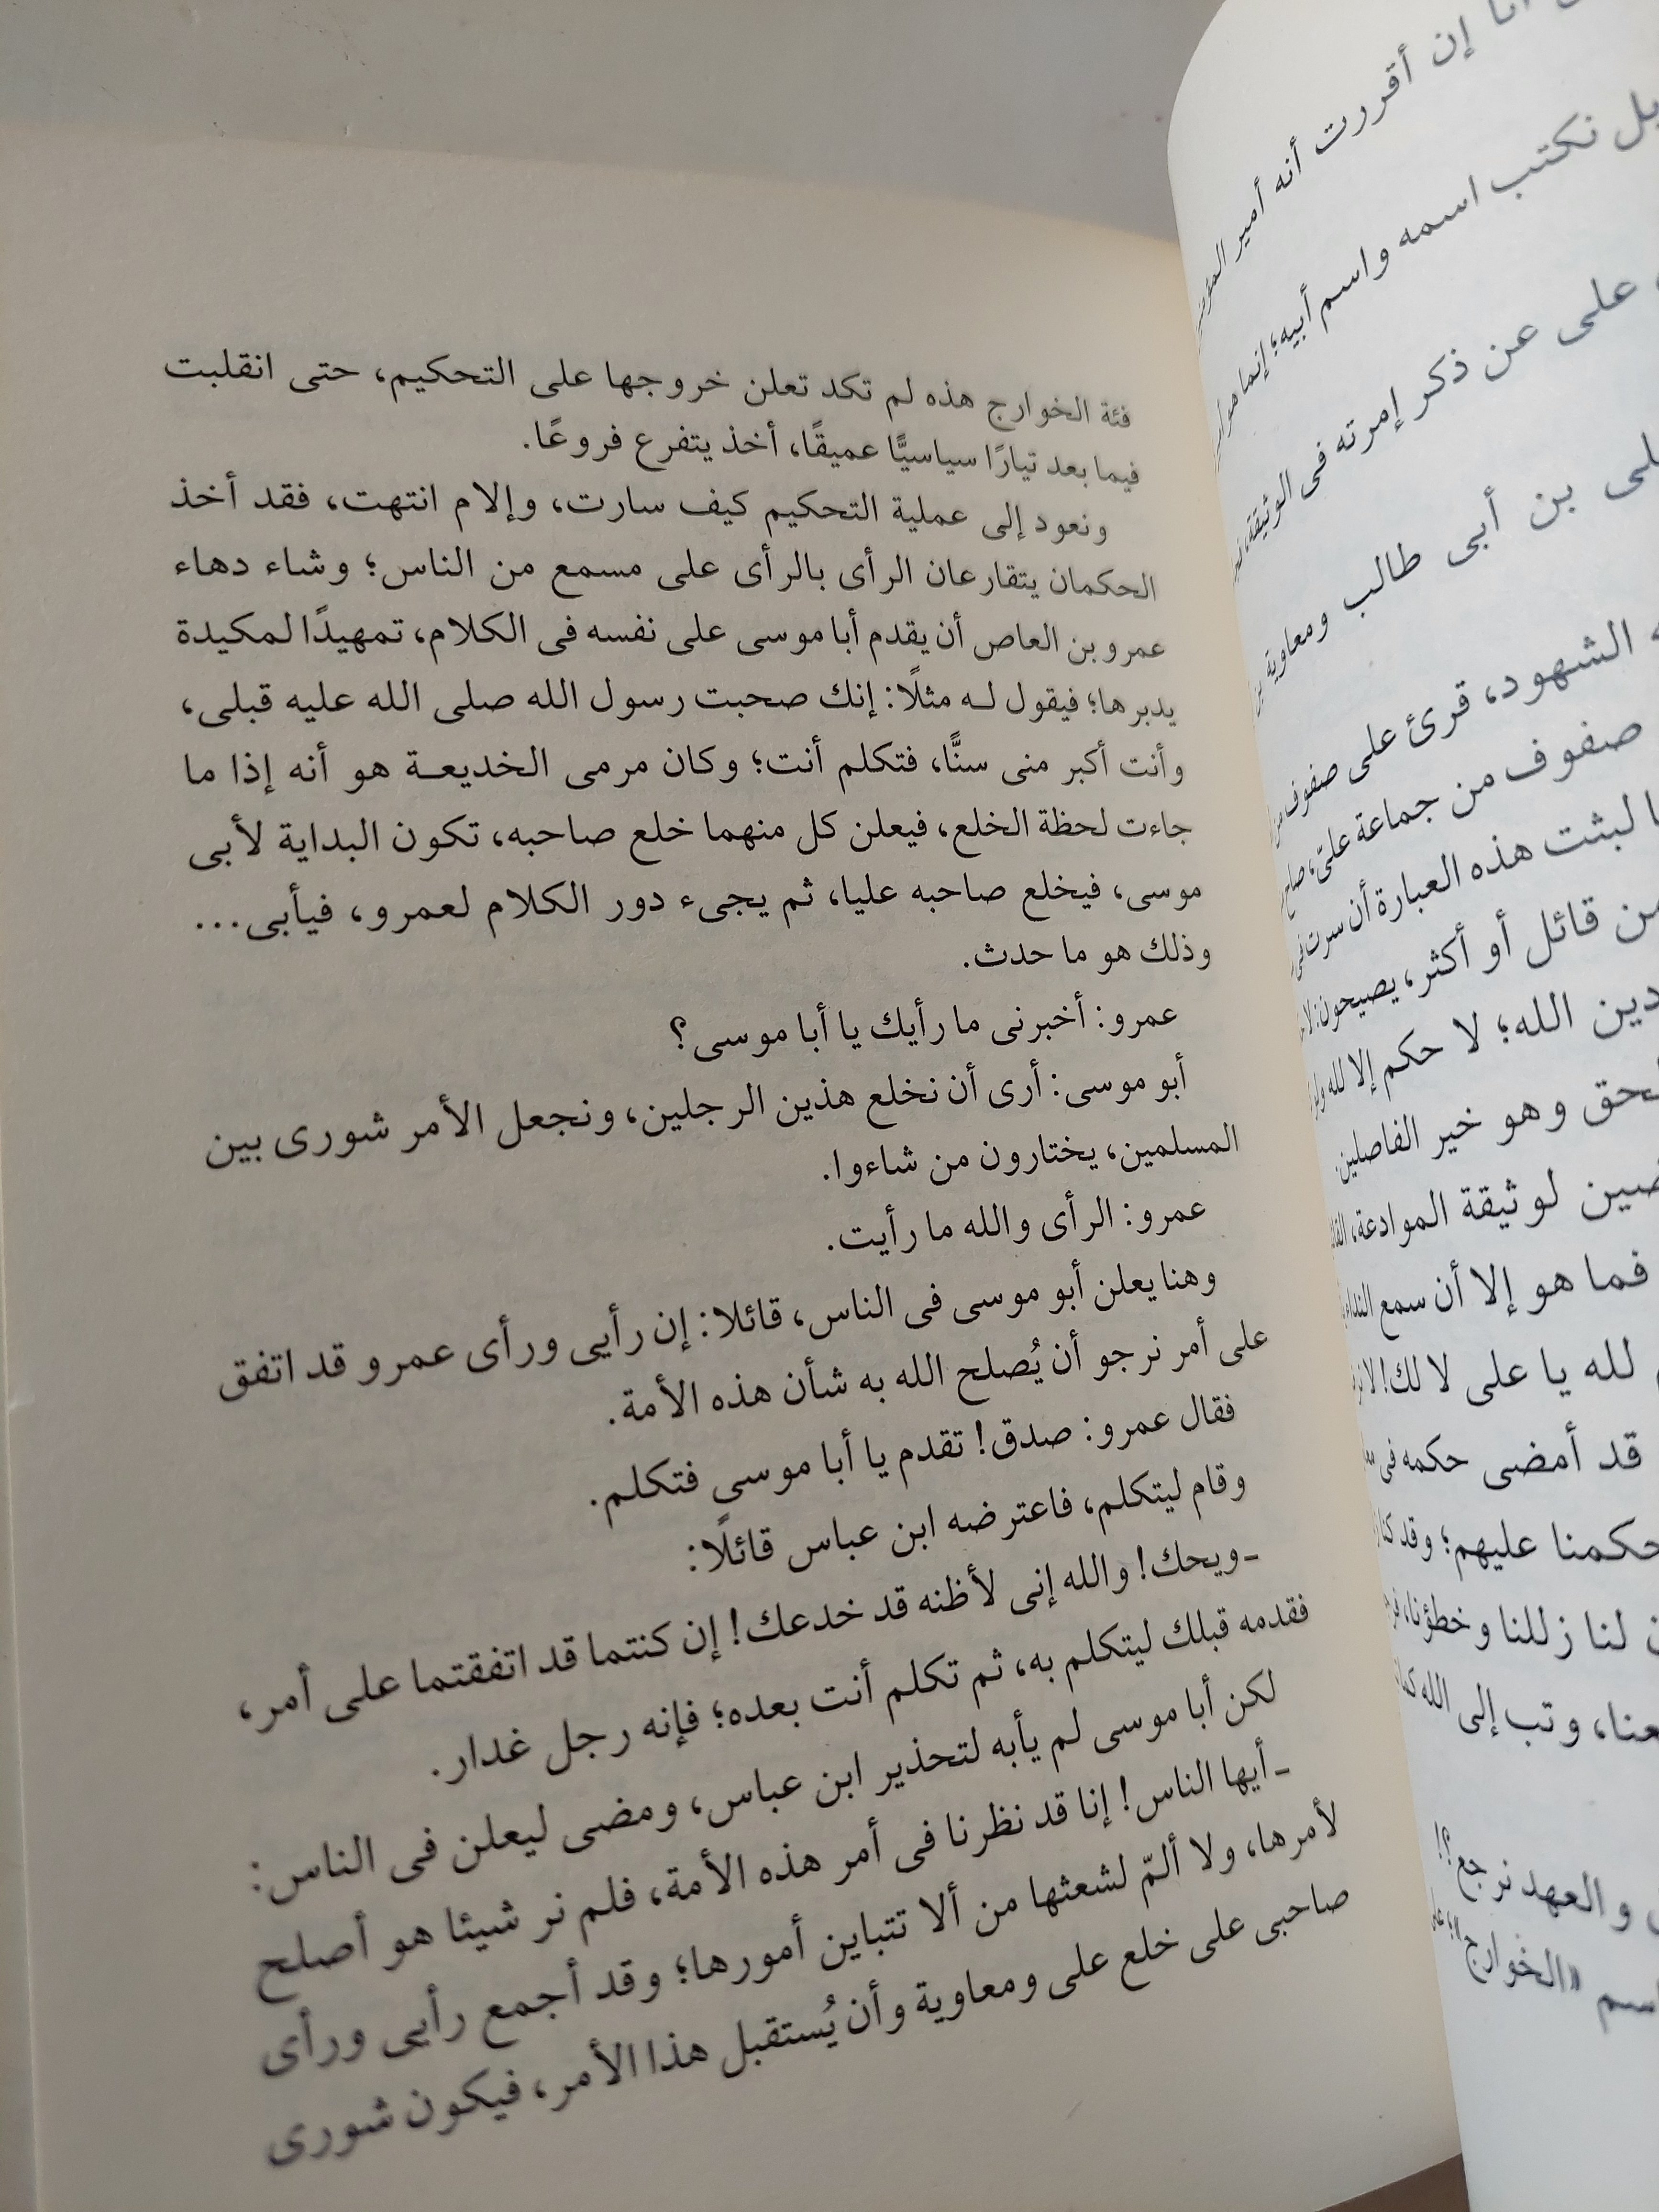 أنا إن أقررت أنه أمير
بل نكتب اسمه واسم أبيه؛ إنما
على عن ذكر إمرته فى الوثيقة،
بن أبى طالب ومعاوية
الشهود، قرئ على صفوف
صفوف من جماعة علىّ،
لبثت هذه العبارة أن سرت فى
من قائل أو أكثر، يصيحون:
دين الله؛ لا حكم إلا لله
وهو خير الفاصلين.
لوثيقة الموادعة،
فما هو إلا أن سمع النداء
لله يا على لا لك!
قد أمضى حكمه فى
حكمنا عليهم؛ وقد كنا
لنا زللنا وخطؤنا،
وتب إلى الله
والعهد نرجع؟!
اسم «الخوارج»
فئة الخوارج هذه لم تكد تعلن خروجها على التحكيم، حتى انقلبت
فيما بعد تيارًا سياسيًّا عميقًا، أخذ يتفرع فروعًا.
ونعود إلى عملية التحكيم كيف سارت، وإلام انتهت، فقد أخذ
الحكمان يتقارعان الرأى بالرأى على مسمع من الناس؛ وشاء دهاء
عمرو بن العاص أن يقدم أبا موسى على نفسه فى الكلام، تمهيدًا لمكيدة
يدبرها؛ فيقول له مثلًا: إنك صحبت رسول الله صلى الله عليه قبلى،
وأنت أكبر منى سنًّا، فتكلم أنت؛ وكان مرمى الخديعة هو أنه إذا ما
جاءت لحظة الخلع، فيعلن كل منهما خلع صاحبه، تكون البداية لأبى
موسى، فيخلع صاحبه عليا، ثم يجىء دور الكلام لعمرو، فيأبى...
وذلك هو ما حدث.
عمرو: أخبرنى ما رأيك يا أبا موسى؟
أبو موسى: أرى أن نخلع هذين الرجلين، ونجعل الأمر شورى بين
المسلمين، يختارون من شاءوا.
عمرو: الرأى والله ما رأيت.
وهنا يعلن أبو موسى فى الناس، قائلا: إن رأيى ورأى عمرو قد اتفق
على أمر نرجو أن يُصلح الله به شأن هذه الأمة.
فقال عمرو: صدق! تقدم يا أبا موسى فتكلم.
وقام ليتكلم، فاعترضه ابن عباس قائلًا:
-ويحك! والله إنى لأظنه قد خدعك! إن كنتما قد اتفقتما على أمر،
فقدمه قبلك ليتكلم به، ثم تكلم أنت بعده؛ فإنه رجل غدار.
لكن أبا موسى لم يأبه لتحذير ابن عباس، ومضى ليعلن فى الناس:
-أيها الناس! إنا قد نظرنا فى أمر هذه الأمة، فلم نر شيئا هو أصلح
لأمرها، ولا ألمّ لشعثها من ألا تتباين أمورها؛ وقد أجمع رأيى ورأى
صاحبى على خلع على ومعاوية وأن يُستقبل هذا الأمر، فيكون شورى